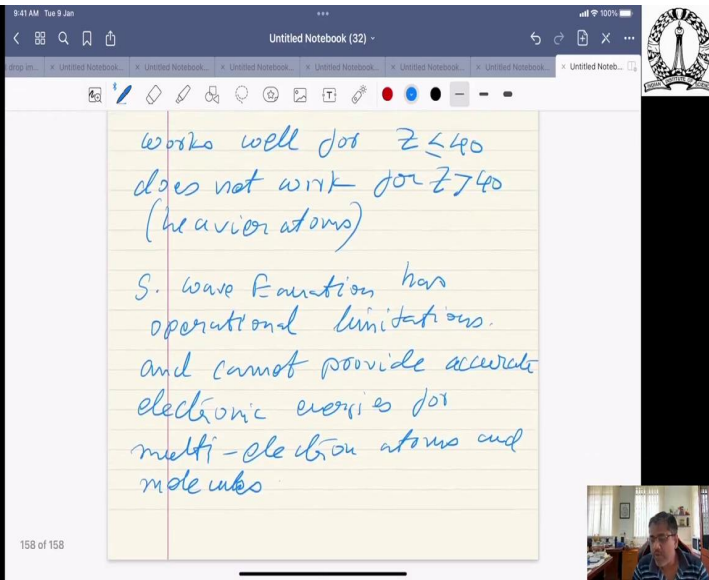 9:41 AM Tue 9 Jan
100%
Untitled Notebook (32)
drop im... × Untitled Notebook... × Untitled Notebook... × Untitled Notebook... × Untitled Notebook... × Untitled Notebook... × Untitled Notebook... × Untitled Noteb...
works well for Z ≤ 40
does not work for Z > 40
(heavier atoms)
S. wave Equation has
operational limitations.
and cannot provide accurate
electronic energies for
multi-electron atoms and
molecules
158 of 158